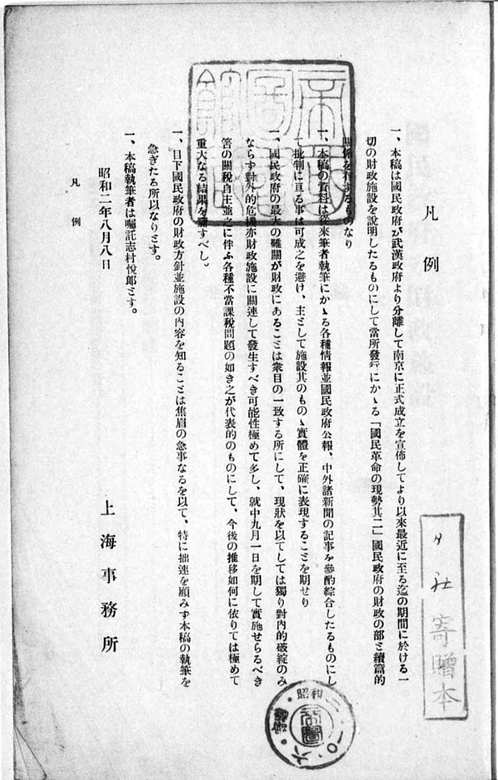 凡例
一、本稿は國民政府が武漢政府より分離して南京に正式成立を宣佈してより以來最近に至る迄の期間に於ける一
切の財政施設を說明したるものにして當所發行にかゝる「國民革命の現勢其二」國民政府の財政の部と續篇的
關係を有するものなり
一、本稿の資料は從來筆者執筆にかゝる各種情報並國民政府公報、中外諸新聞の記事を參酌綜合したるものにし
て批判に亘る事は可成之を避け、主として施設其のものゝ實體を正確に表現することを期せり
一、國民政府の最大の難關が財政にあることは衆目の一致する所にして、現狀を以てしては獨り對內的破綻のみ
ならず對外的危機亦財政施設に關連して發生すべき可能性極めて多し、就中九月一日を期して實施せらるべき
筈の關稅自主並之に伴ふ各種不當課稅問題の如き之が代表的のものにして、今後の推移如何に依りては極めて
重大なる結果を齎すべし。
一、目下國民政府の財政方針並施設の內容を知ることは焦眉の急事なるを以て、特に拙速を顧みず本稿の執筆を
急ぎたる所以なりとす。
一、本稿執筆者は囑託志村悅郎とす。
昭和二年八月八日
上海事務所
凡例
社寄贈本
昭和